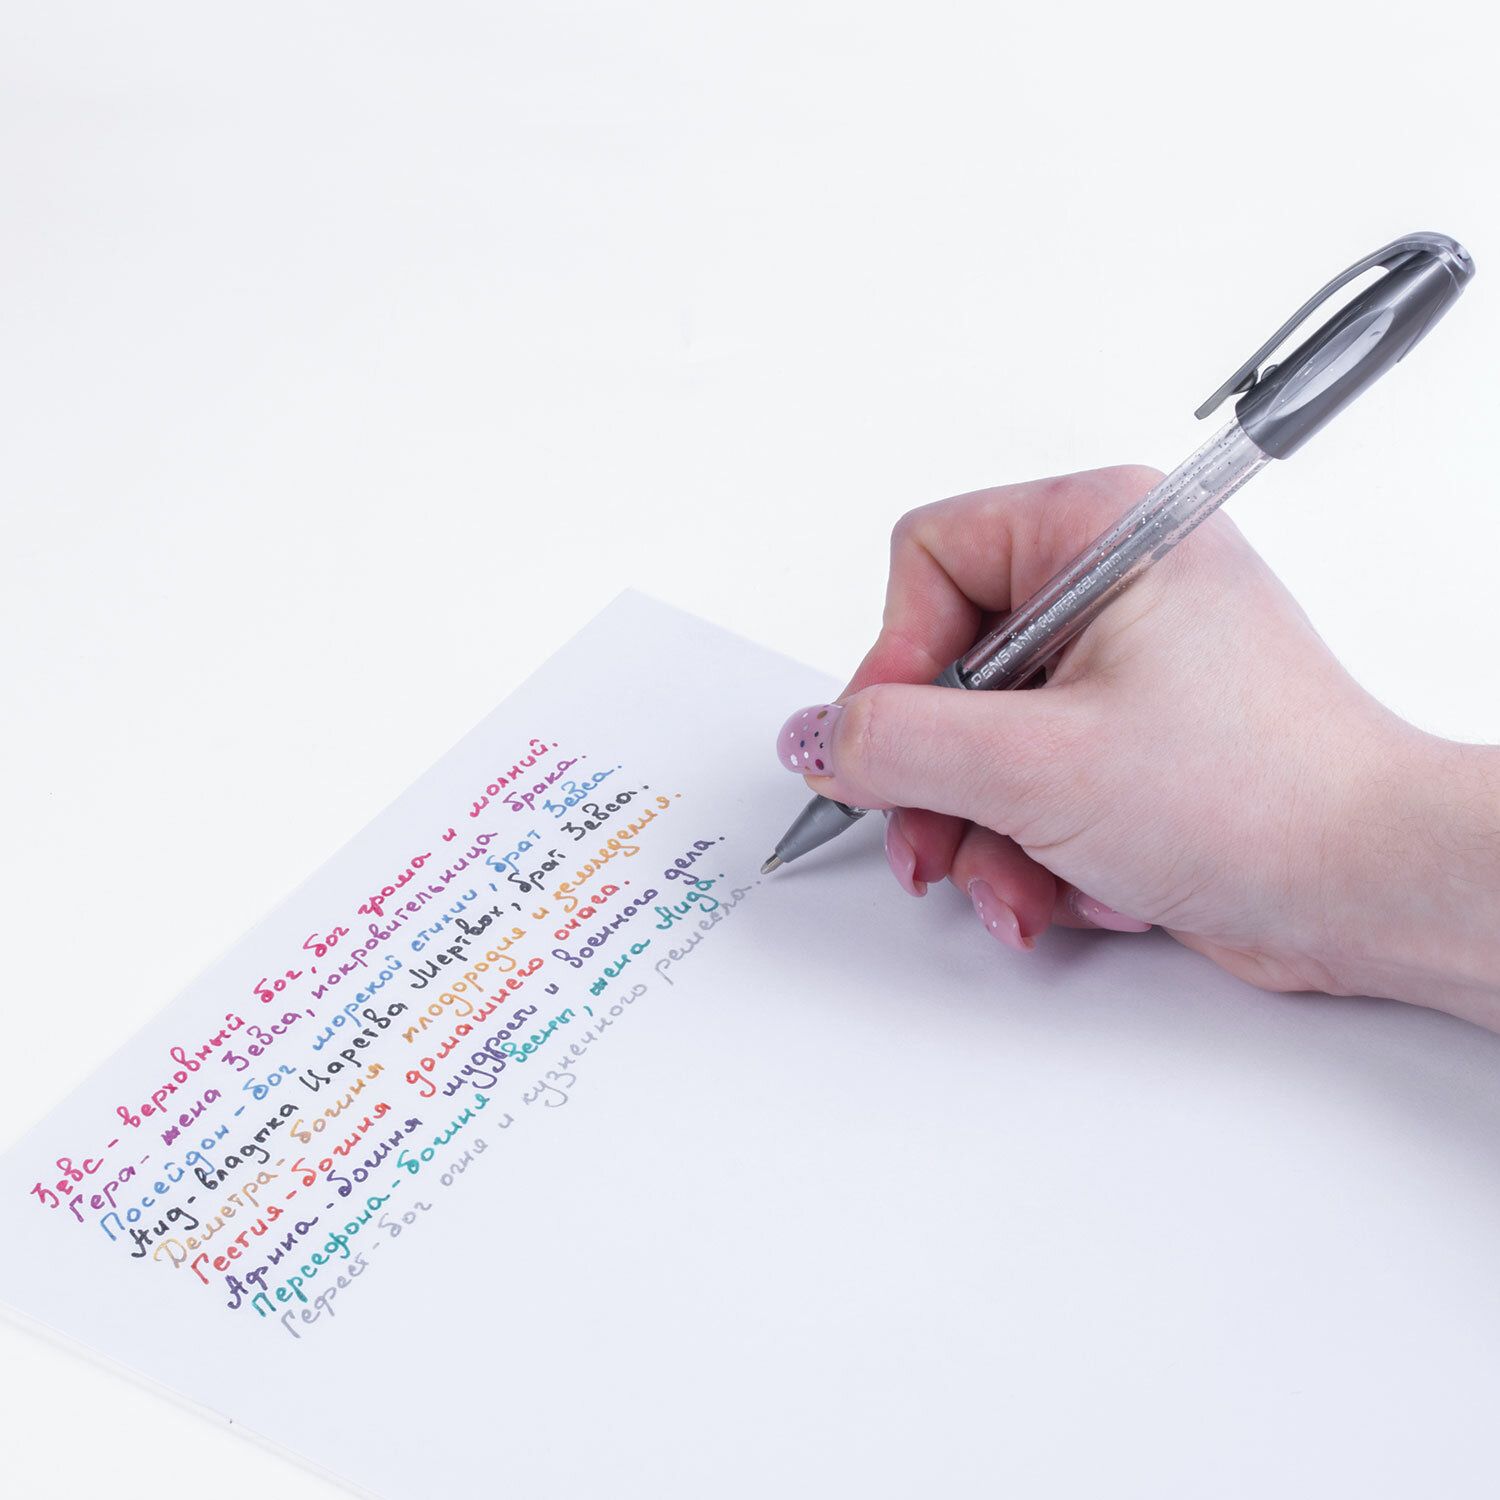 Зевс - верховный бог, бог грома и молний.
Гера - жена Зевса, покровительница брака.
Посейдон - бог морской стихии, брат Зевса.
Аид - владыка Царства Мертвых, брат Зевса.
Деметра - богиня плодородия и земледелия.
Гестия - богиня домашнего очага.
Афина - богиня мудрости и военного дела.
Персефона - богиня весны, жена Аида.
Гефест - бог огня и кузнечного ремесла.
PENSAN GLITTER GEL 1mm